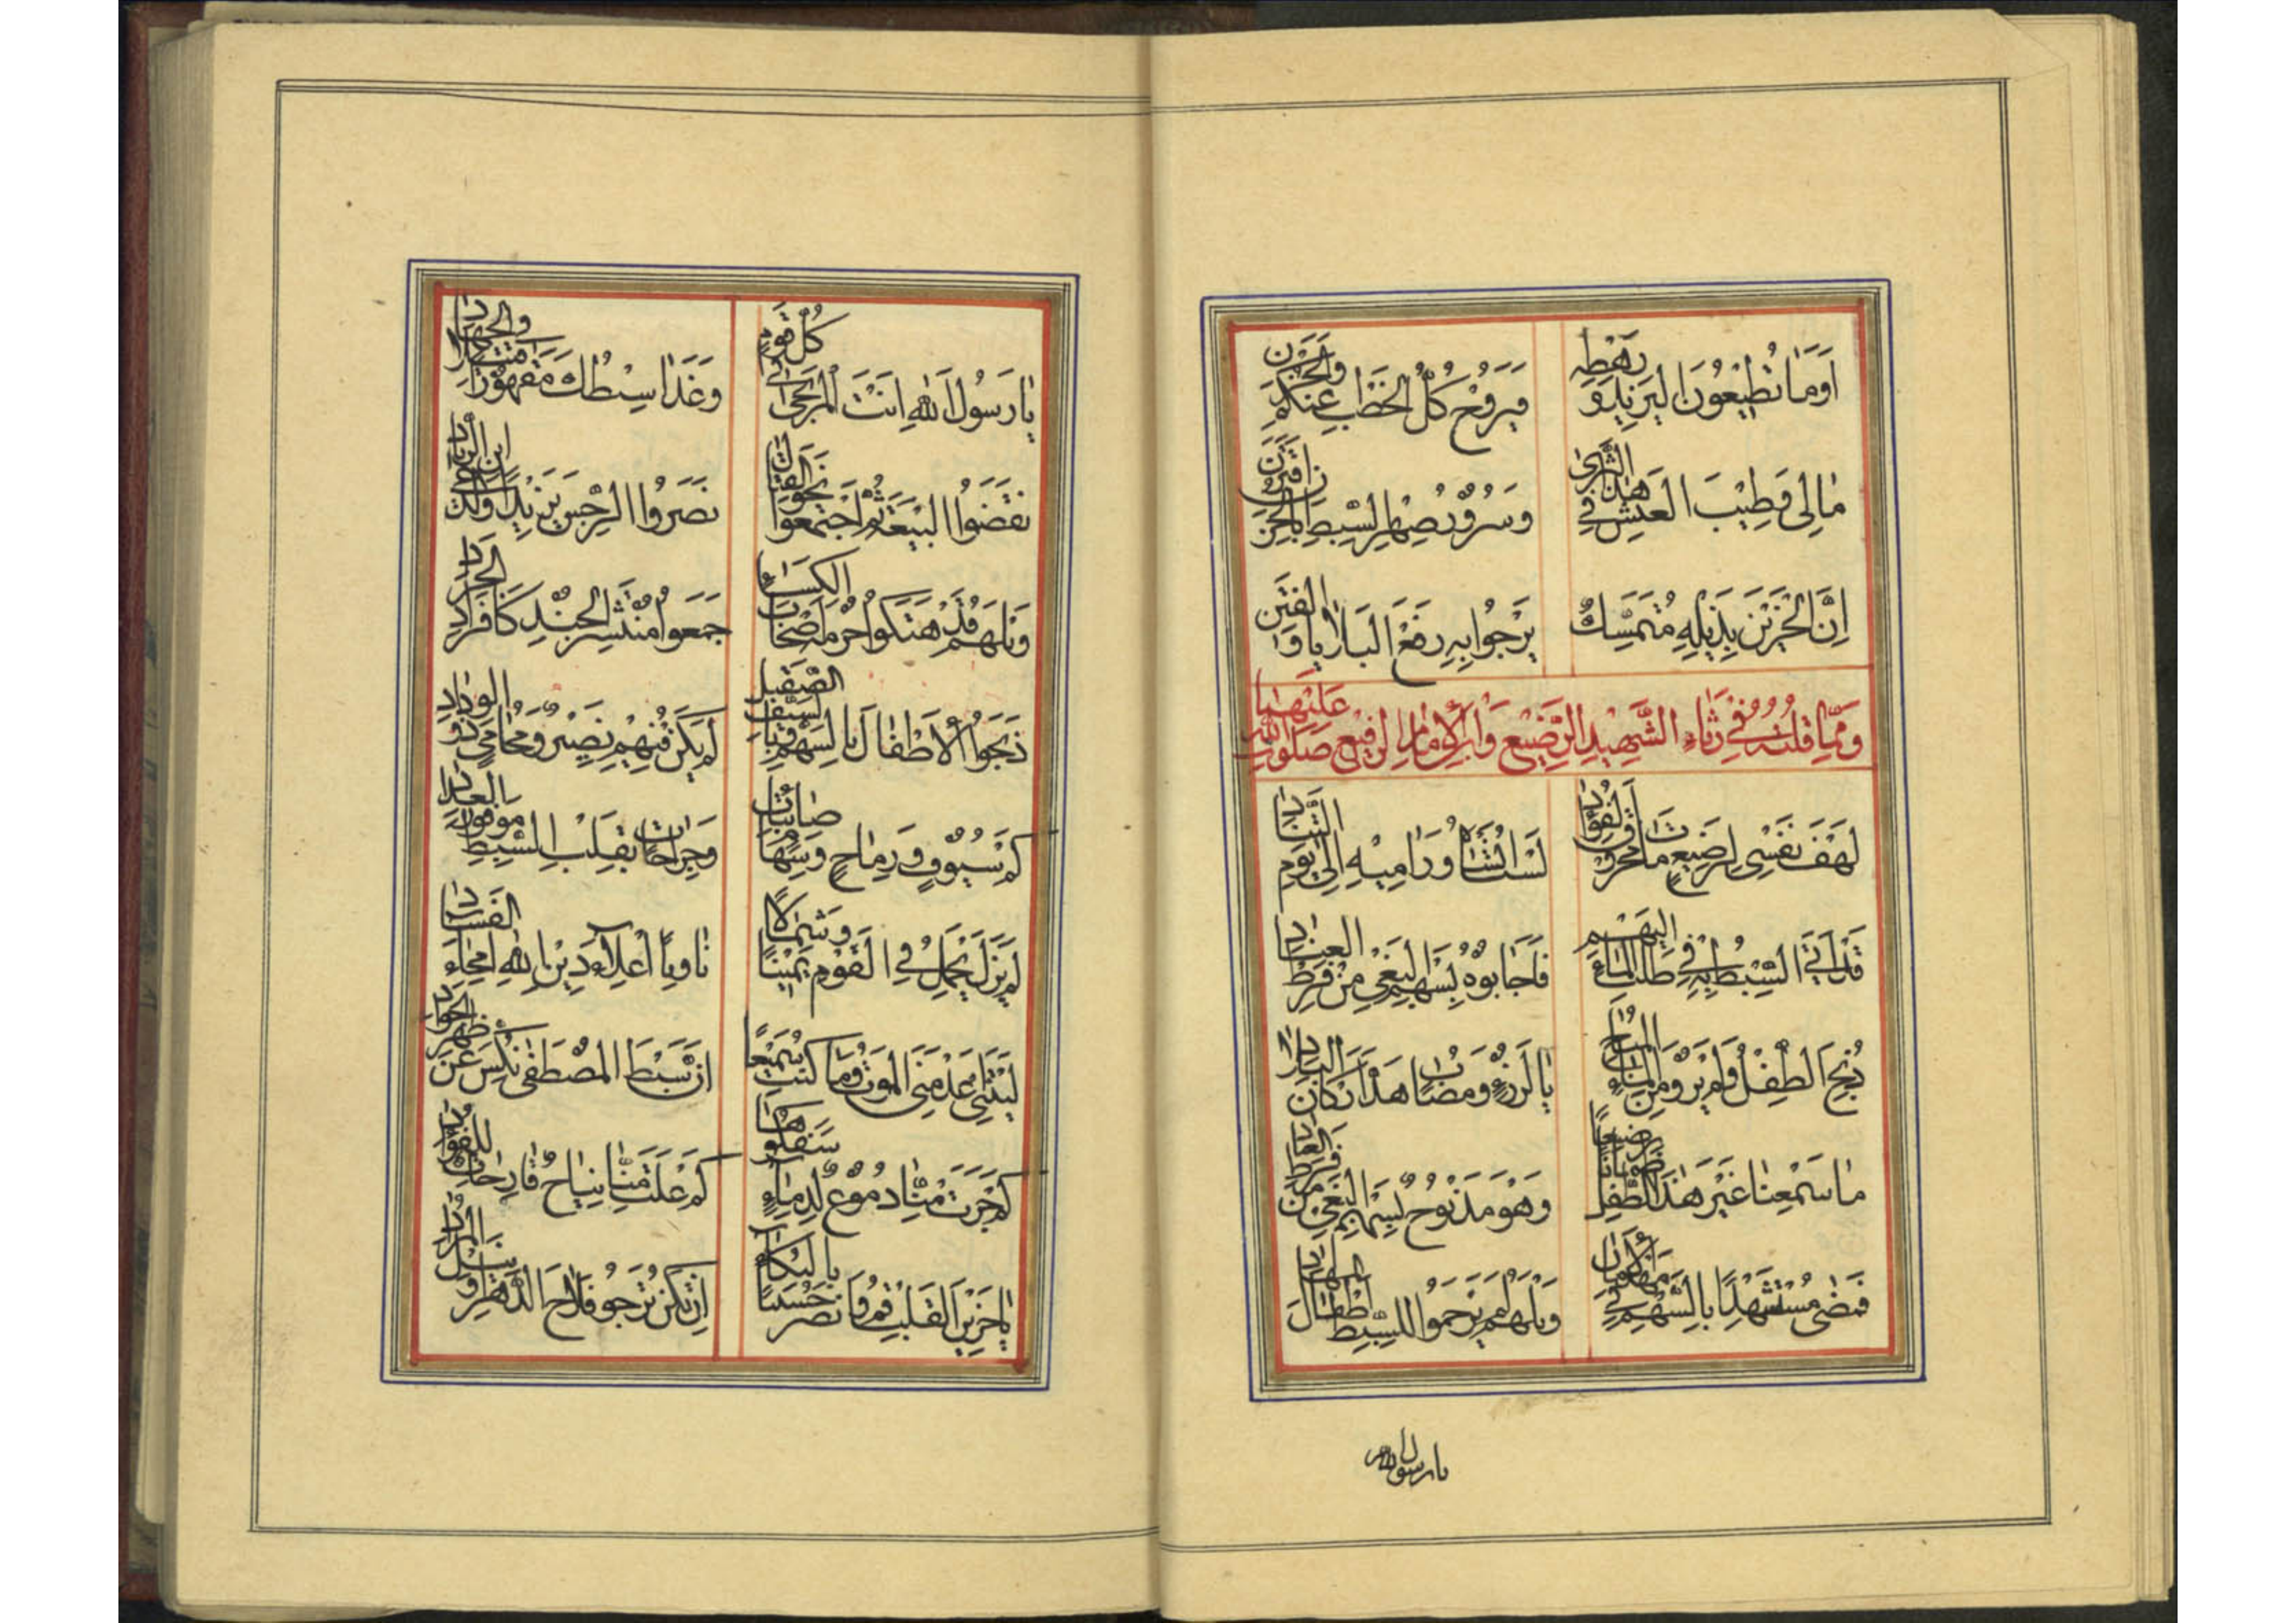 اَوَمَا تُطِيْعُونَ لِيَزِيْدَ وَرَهْطِهِ
فَيَرُوْحُ كُلُّ الْخَطَابِ عَنْكُمْ وَالْحَزَن
مَا لِى وَطِيْبَ الْعَيْشِ فِي هٰذَا الثَّرىٰ
وَسُرُوْرُ صِهْرِ السِّبْطِ بِالْحُزْنِ
اِنَّ الْحَزِيْنَ بِذَيْلِهِ مُتَمَسِّكٌ
يَرْجُوا بِهِ رَفْعَ الْبَلَايَا وَالْفِتَن
وَمِمَّا قُلْتُهُ فِي رَثَاءِ الشَّهِيْدِ الرَّضِيْعِ وَابْنِ الْاِمَامِ الرَّفِيْعِ صَلَوَاتُ اللّٰهِ عَلَيْهِمَا
لَهْفَ نَفْسِى لِرَضِيْعٍ مَاتَ مَحْرُوْقَ الْفُؤَاد
لَسْتُ اَنْسَاهُ وَرَامِيْهِ اِلىٰ يَوْمِ التَّنَاد
قَدْ اَتَى السِّبْطُ بِهِ فِي طَلَبِ الْمَاءِ اِلَيْهِمْ
فَاَجَابُوْهُ بِسَهْمِ الْبَغْيِ مِنْ فَرْطِ الْعِنَاد
ذُبِحَ الطِّفْلُ وَلَمْ يَرْوَ مِنَ الْمَاءِ الْمُبَاحِ
يَا لَرُزْءٍ وَمُصَابٍ هَدَّ اَرْكَانَ الْبِلَاد
مَا سَمِعْنَا غَيْرَ هٰذَا الطِّفْلِ ظَمْاٰنًا رَضِيعًا
وَهْوَ مَذْبُوْحٌ بِسَهْمِ الْبَغْيِ مِنْ
فَمَضٰى مُسْتَشْهِدًا بِالسَّهْمِ فِي
وَيْلَهُمْ لَمْ يَرْحَمُوا لِلسِّبْطِ اَطْفَالَ
يا رسول الله
يَا رَسُوْلَ اللّٰهِ اَنْتَ الْمُرْتَجىٰ فِي كُلِّ قَوْمٍ
وَغَدَا سِبْطُكَ مَقْهُوْرًا
نَقَضُوا الْبَيْعَةَ ثُمَّ اجْتَمَعُوا نَحْوَ الْقِتَال
نَصَرُوا الرِّجْسَ يَزِيْدًا وَلَدَىٰ ابْنِ الزِّيَاد
وَيْلَهُمْ قَدْ هَتَكُوا حُرْمَةَ اَصْحَابِ الْكِسَاءِ
جَمَعُوا مُنْتَشِرَ الْجُنْدِ كَاَفْرَادِ الْجَرَاد
ذَبَحُوا الْاَطْفَالَ بِالسَّهْمِ وَبِالسَّيْفِ الصَّقِيْلِ
لَمْ يَكُنْ فِيْهِمْ نَصِيْرٌ وَمُحَامِى ذُو الْوِدَاد
كَمْ سُيُوْفٍ وَرِمَاحٍ وَسِهَامٍ صَائِبَات
وَجِرَاحَاتٍ بِقَلْبِ السِّبْطِ
لَمْ يَزَلْ يَحْمِلُ فِي الْقَوْمِ يَمِيْنًا وَشِمَالًا
نَاوِيًا اِعْلَاءَ دِيْنِ اللّٰهِ اِمْحَاءِ الْفَسَاد
لَيْتَنِى مُعْدَمِنَى الْمَوْتُ وَمَا كُنْتُ سَمِيْعًا
اَنَّ سِبْطَ الْمُصْطَفٰى نُكِّسَ عَنْ ظَهْرِ الْجَوَاد
كَمْ جَرَتْ مِنَّا دُمُوْعٌ لِدِمَاءٍ سَفَكُوْهَا
كَمْ عَلَتْ مِنَّا نِيَاحٌ قَادِحَاتٌ لِلْفُؤَاد
يَا حَزِيْنَ الْقَلْبِ قُمْ وَانْصُرْ حُسَيْنًا بِالْبُكَاءِ
اِنْ تَكُنْ تَرْجُو فَلَاحَ الدَّهْرِ وَنَيْلَ الْمُرَاد